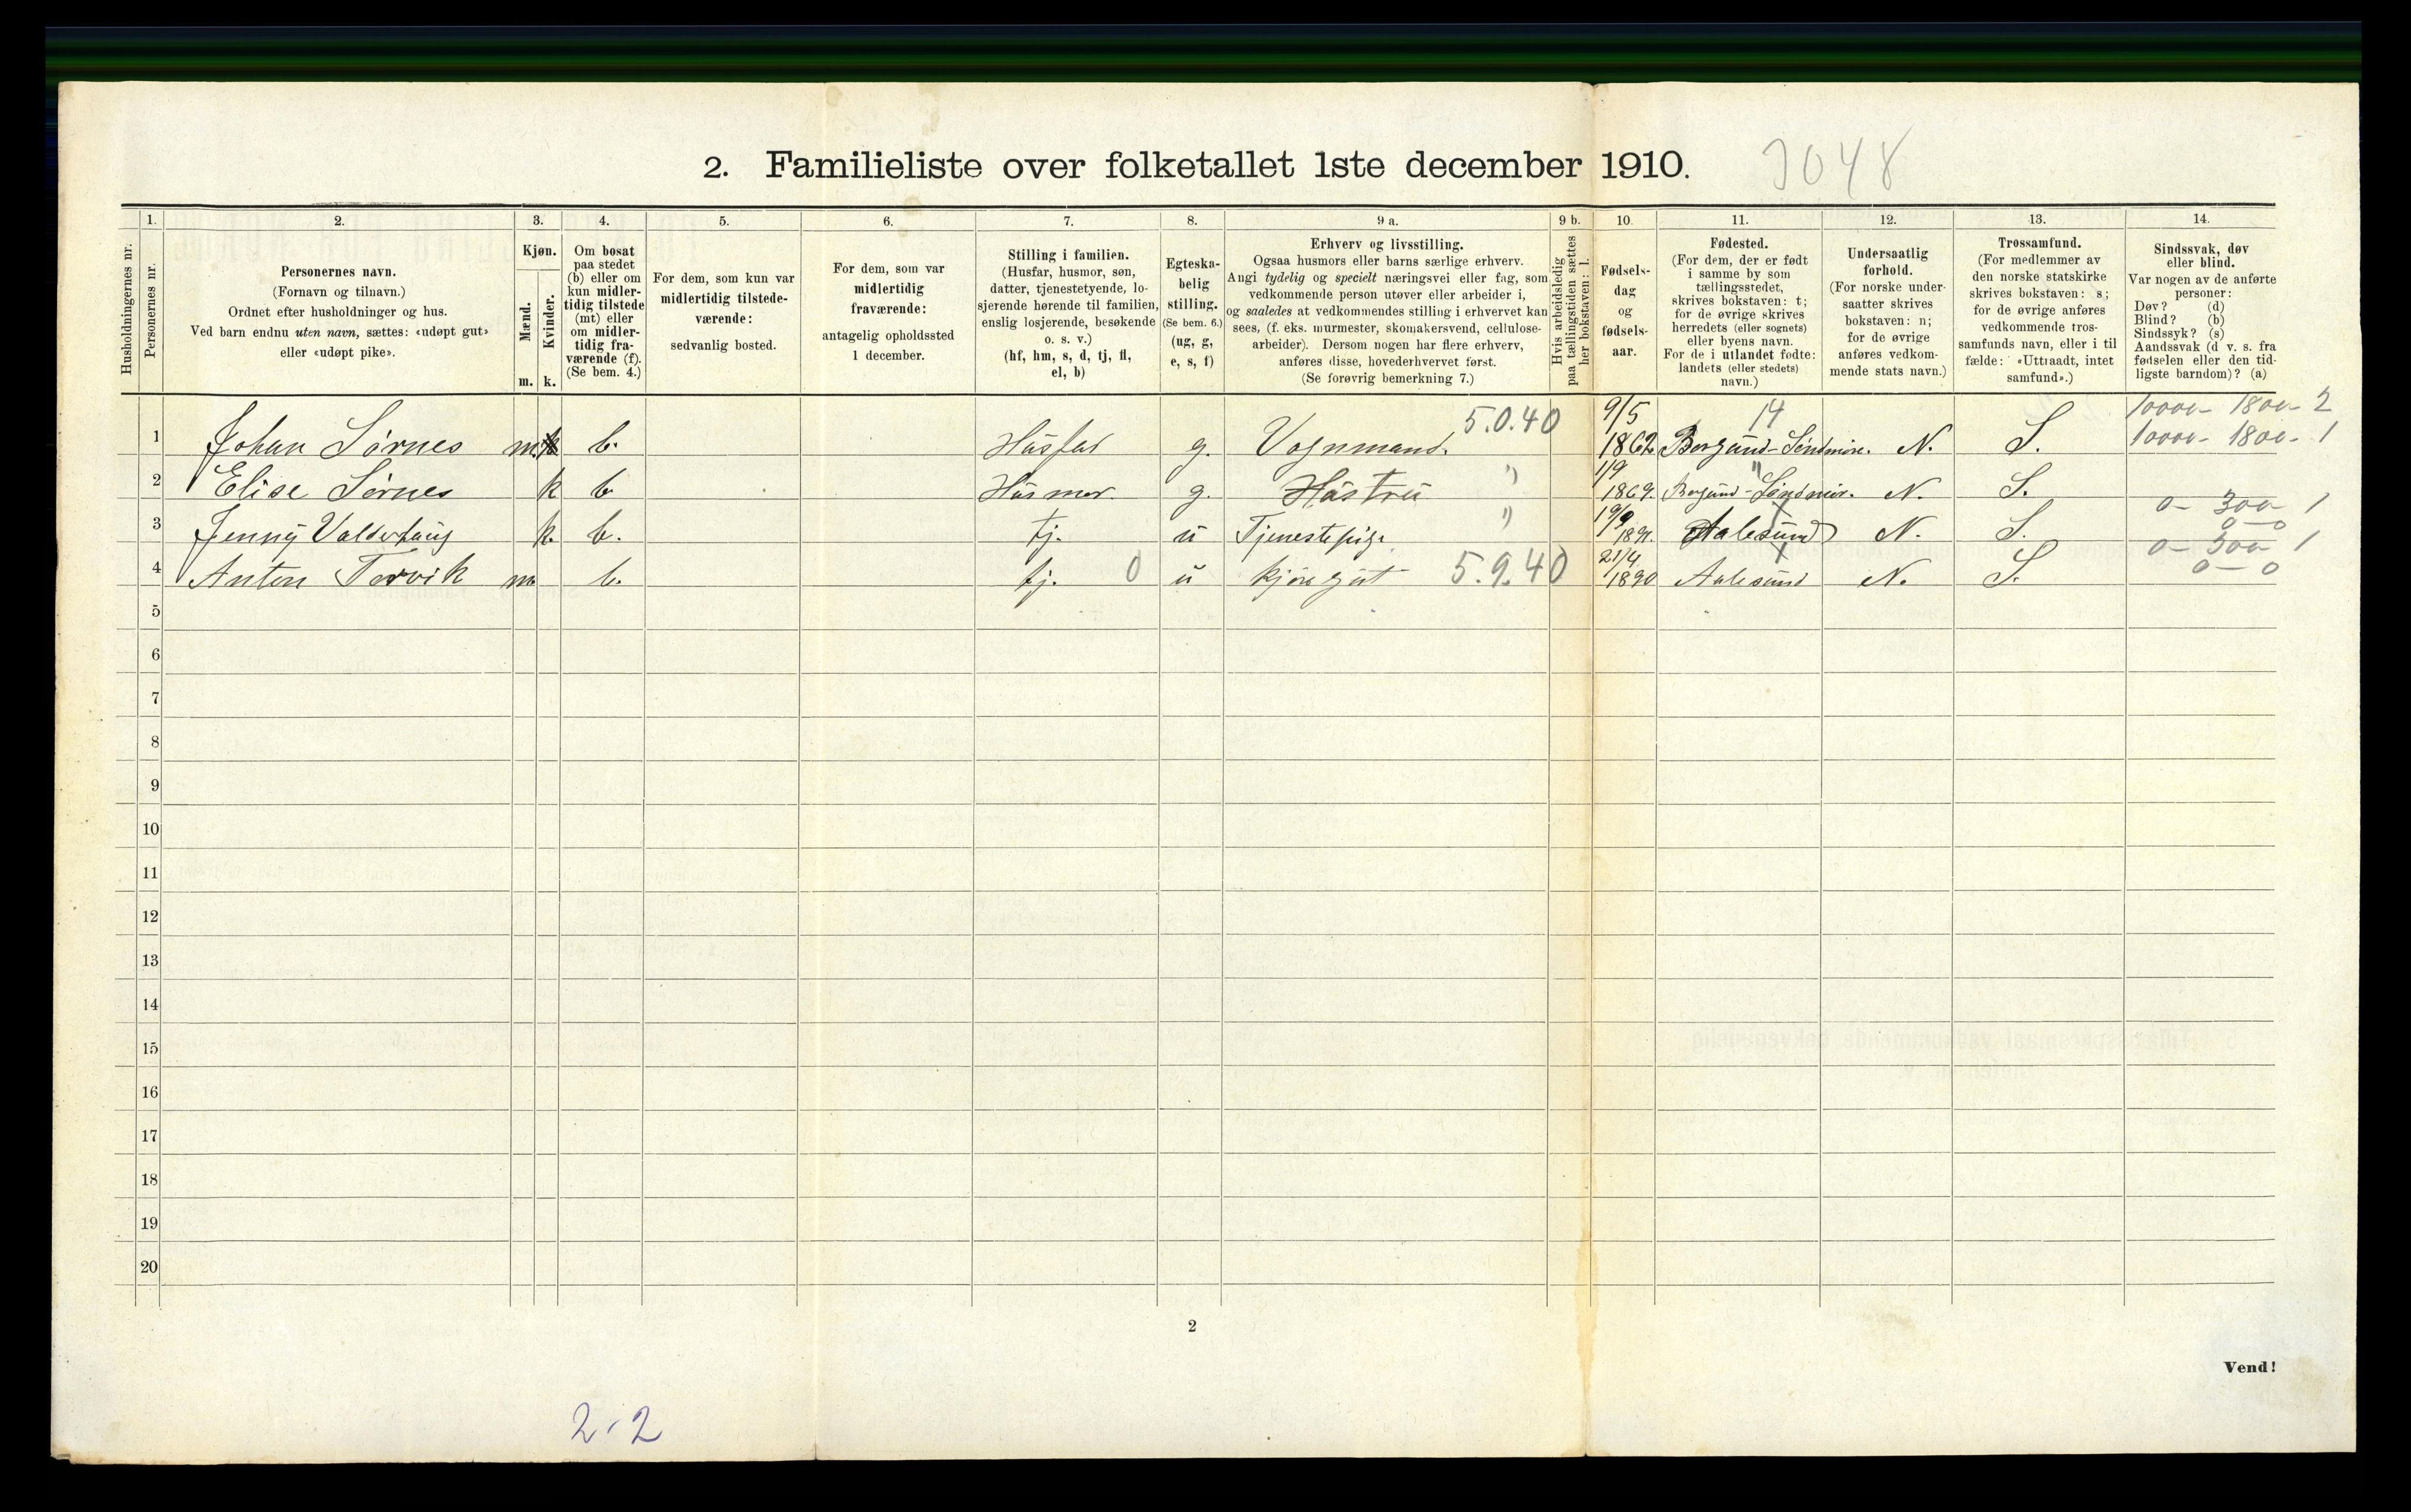 2. Familieliste over folketallet 1ste december 1910.
3048
Husholdningernes nr.
1.
Personernes nr.
2.
Personernes navn.
(Fornavn og tilnavn.)
Ordnet efter husholdninger og hus.
Ved barn endnu uten navn, sættes: «udøpt gut»
eller «udøpt pike».
3.
Kjøn.
Mænd.
Kvinder.
m. k.
4.
Om bosat
paa stedet
(b) eller om
kun midler-
tidig tilstede
(mt) eller
om midler-
tidig fra-
værende (f).
(Se bem. 4.)
5.
For dem, som kun var
midlertidig tilstede-
værende:
sedvanlig bosted.
6.
For dem, som var
midlertidig
fraværende:
antagelig opholdssted
1 december.
7.
Stilling i familien.
(Husfar, husmor, søn,
datter, tjenestetyende, lo-
sjerende hørende til familien,
enslig losjerende, besøkende
o. s. v.)
(hf, hm, s, d, tj, fl,
el, b)
8.
Egteska-
belig
stilling.
(Se bem. 6.)
(ug, g,
e, s, f)
9 a.
Erhverv og livsstilling.
Ogsaa husmors eller barns særlige erhverv.
Angi tydelig og specielt næringsvei eller fag, som
vedkommende person utøver eller arbeider i,
og saaledes at vedkommendes stilling i erhvervet kan
sees, (f. eks. murmester, skomakersvend, cellulose-
arbeider). Dersom nogen har flere erhverv,
anføres disse, hovederhvervet først.
(Se forøvrig bemerkning 7.)
9 b.
Hvis arbeidsledig
paa tællingstiden sættes
her bokstaven: l.
10.
Fødsels-
dag
og
fødsels-
aar.
11.
Fødested.
(For dem, der er født
i samme by som
tællingsstedet,
skrives bokstaven: t;
for de øvrige skrives
herredets (eller sognets)
eller byens navn.
For de i utlandet fødte:
landets (eller stedets)
navn.)
12.
Undersaatlig
forhold.
(For norske under-
saatter skrives
bokstaven: n;
for de øvrige
anføres vedkom-
mende stats navn.)
13.
Trossamfund.
(For medlemmer av
den norske statskirke
skrives bokstaven: s;
for de øvrige anføres
vedkommende tros-
samfunds navn, eller i til
fælde: «Uttraadt, intet
samfund».)
14.
Sindssvak, døv
eller blind.
Var nogen av de anførte
personer:
Døv? (d)
Blind? (b)
Sindssyk? (s)
Aandssvak (d v. s. fra
fødselen eller den tid-
ligste barndom)? (a)
5.0.40 9/5 14 10000- 1800- 2
1 Johan Sørnes m. k b. Husfar g. Vognmand. 1862 Borgund-Søndmøre. N. S. 10000- 1800- 1
1/9 "
2 Elise Sørnes k b. Husmor. g. Hustru " 1869. Borgund-Søndmør. N. S.
19/9 0- 300- 1
3 Jenny Valderhaug k. b. tj. u Tjenestepige " 1891. Aalesund N. S. 0-0
21/4 0- 300- 1
4 Anton Tervik m. b. tj. 0 u kjøregut 5.9.40 1890 Aalesund N. S. 0-0
5
6
7
8
9
10
11
12
13
14
15
16
17
18
19
20
2
Vend!
2-2